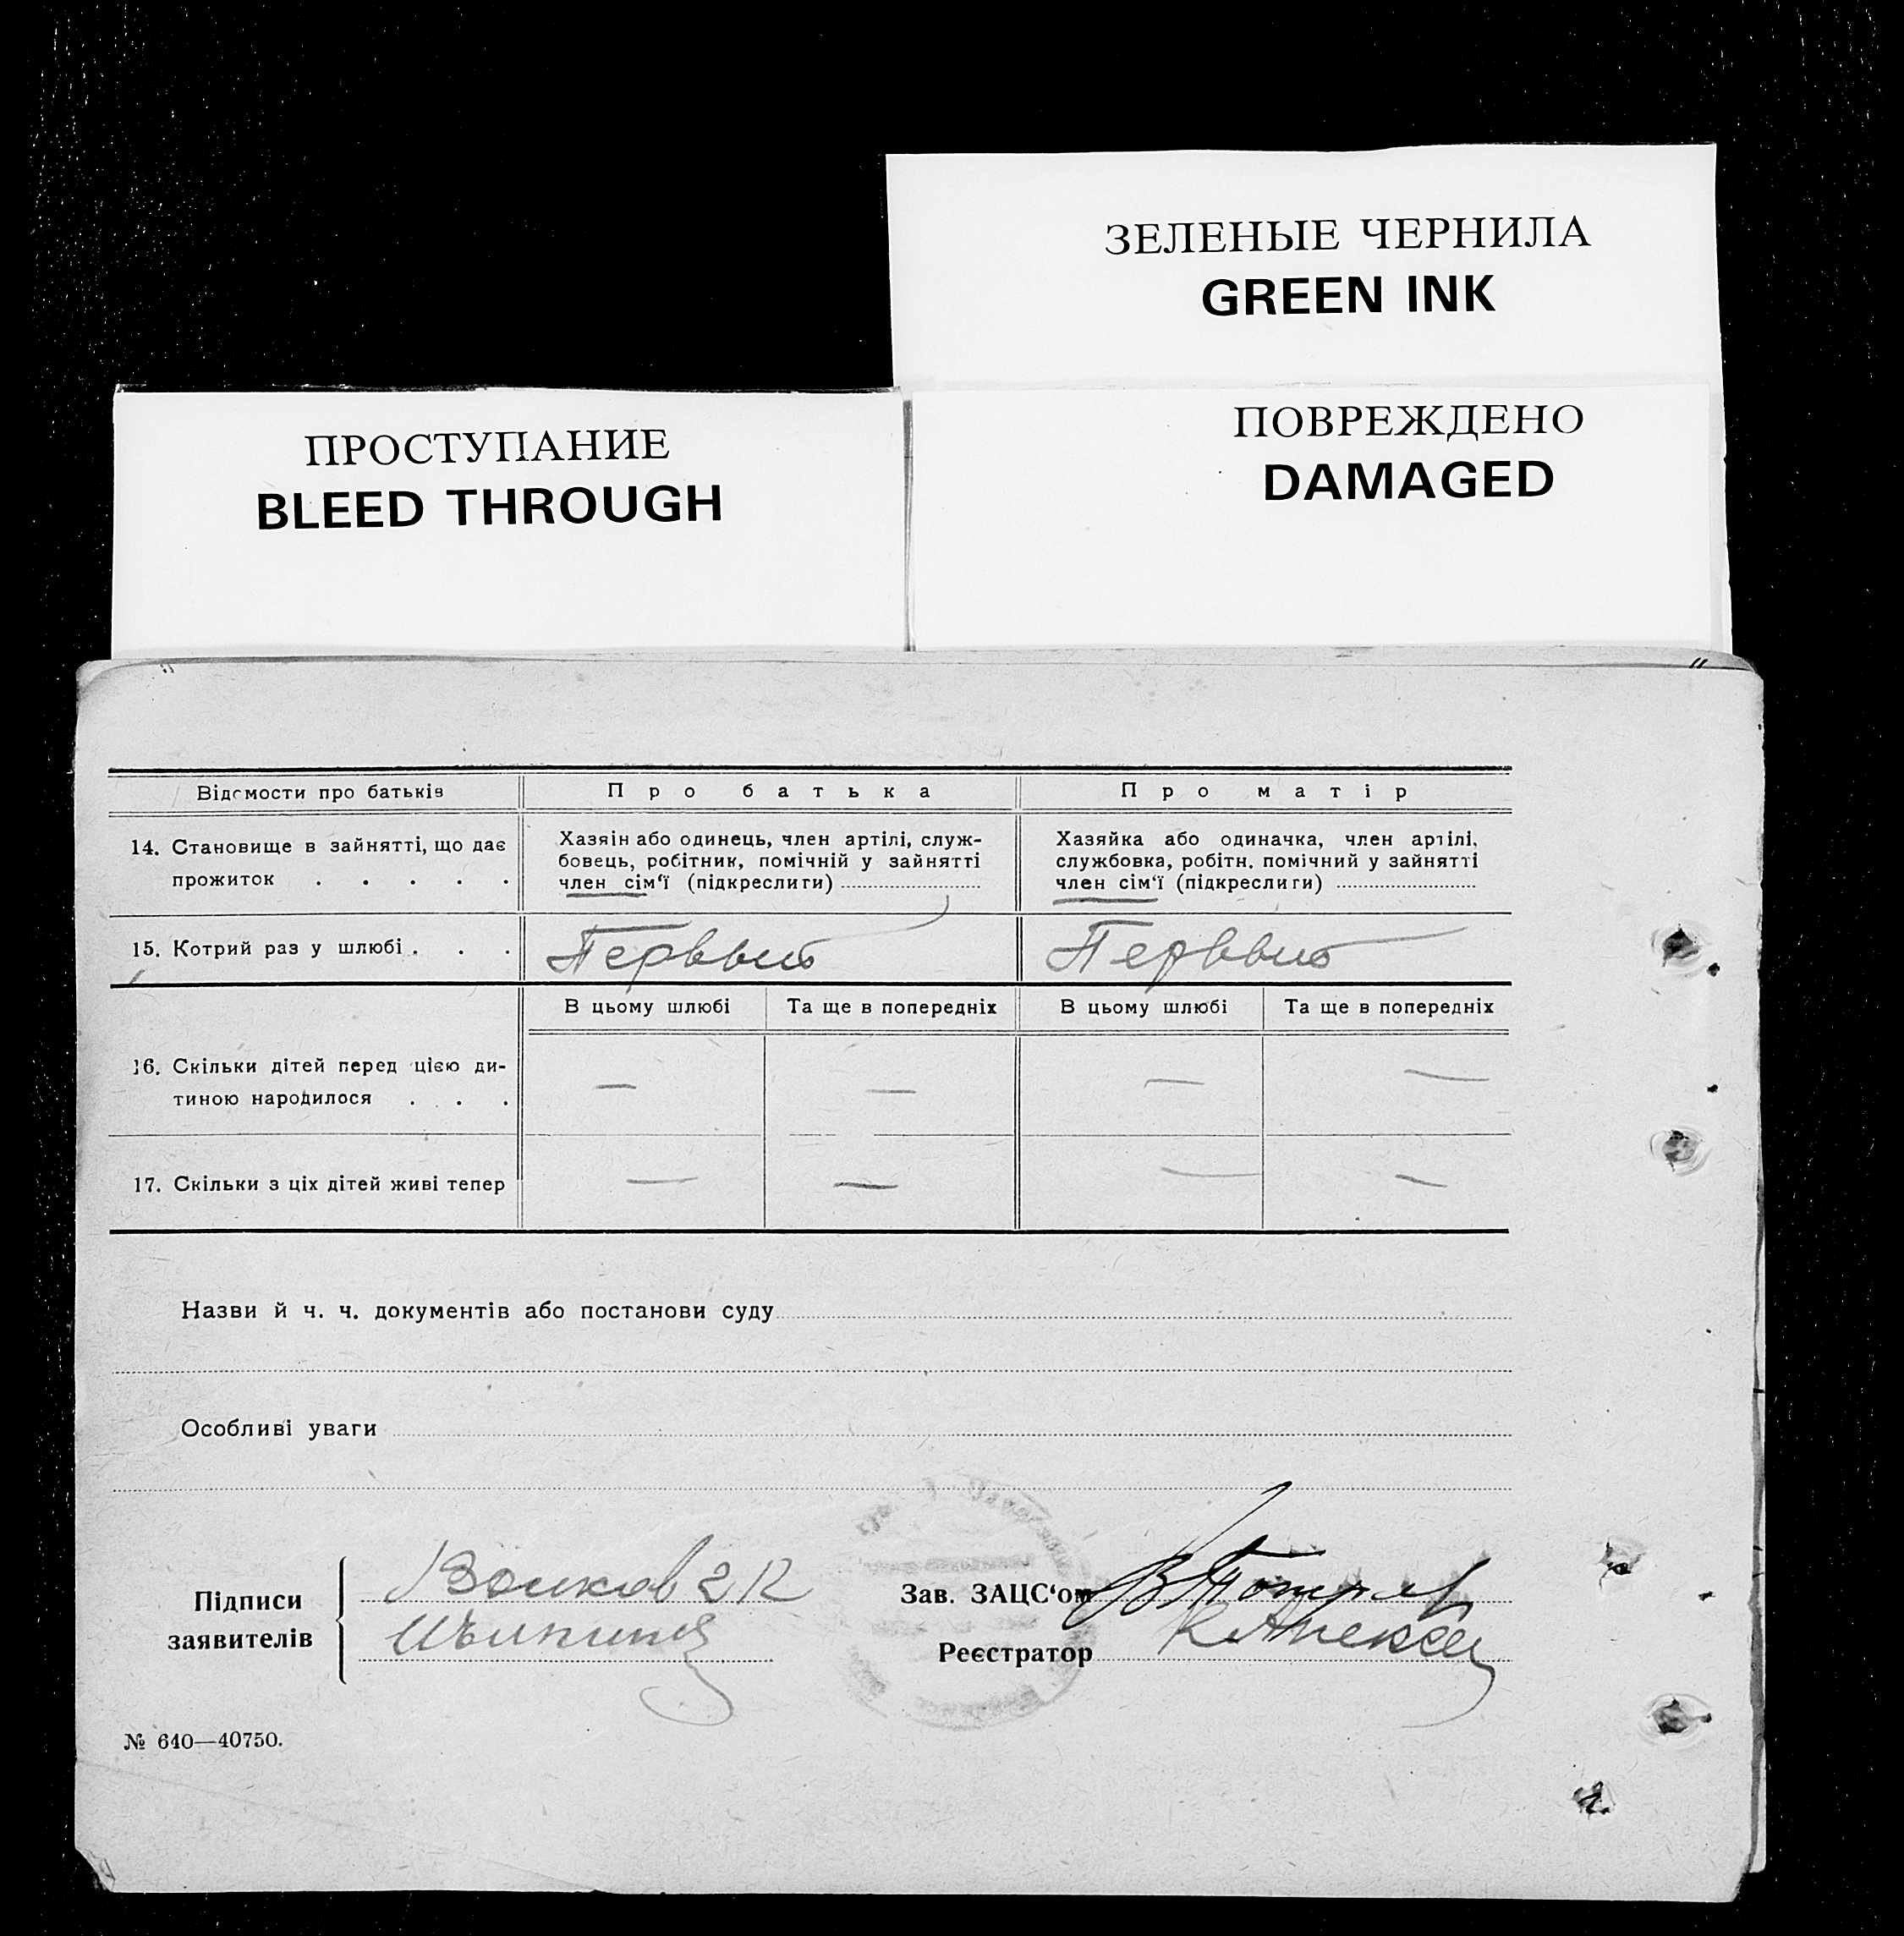 ЗЕЛЕНЫЕ ЧЕРНИЛА
GREEN INK
ПРОСТУПАНИЕ
BLEED THROUGH
ПОВРЕЖДЕНО
DAMAGED
Відомости про батьків
Про батька
Про матір
14. Становище в зайнятті, що дає
прожиток . . . . .
Хазяін або одинець, член артілі, служ-
бовець, робітник, помічній у зайнятті
член сім‘ї (підкреслиги)
Хазяйка або одиначка, член артілі,
службовка, робітн. помічний у зайнятті
член сім‘ї (підкреслиги)
15. Котрий раз у шлюбі . . .
Первый
Первый
В цьому шлюбі
Та ще в попередніх
В цьому шлюбі
Та ще в попередніх
16. Скільки дітей перед цією ди-
тиною народилося . . .
— — — —
17. Скільки з ціх дітей живі тепер
— — — —
Назви й ч. ч. документів або постанови суду
Особливі уваги
Підписи
заявителів
Зав. ЗАЦС‘ом
Реєстратор
№ 640—40750.